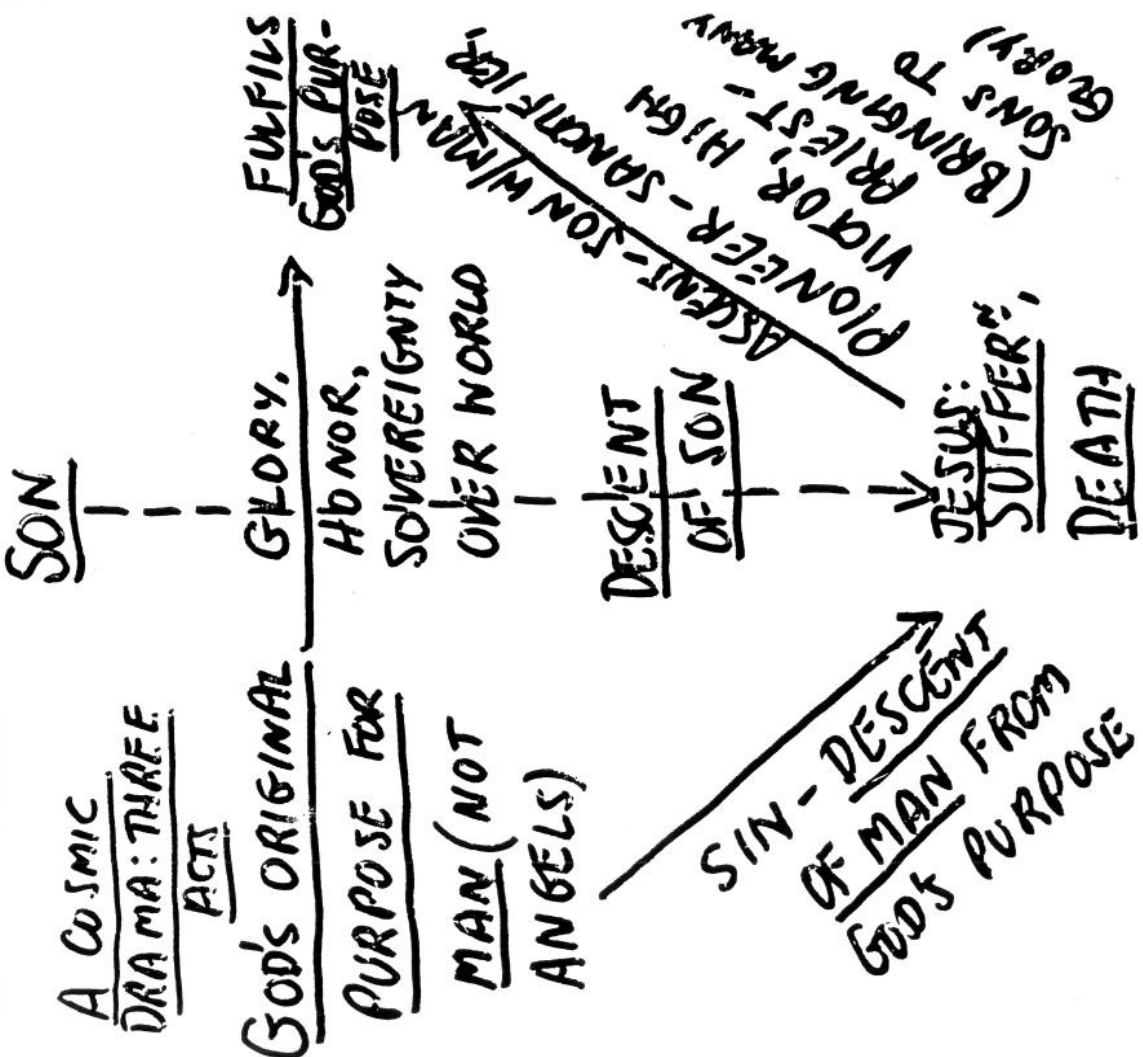 A COSMIC
DRAMA: THREE
ACTS
SON
GOD'S ORIGINAL
PURPOSE FOR
MAN (NOT
ANGELS)
GLORY,
HONOR,
SOVEREIGNTY
OVER WORLD
FULFILS
GOD'S PUR-
POSE
SIN - DESCENT
OF MAN FROM
GOD'S PURPOSE
DESCENT
OF SON
JESUS:
SUFFER'N',
DEATH
ASCENT - SON W/MAN
PIONEER - SANCTIFIER,
VICTOR, HIGH
PRIEST -
(BRINGING MANY
SONS TO
GLORY)